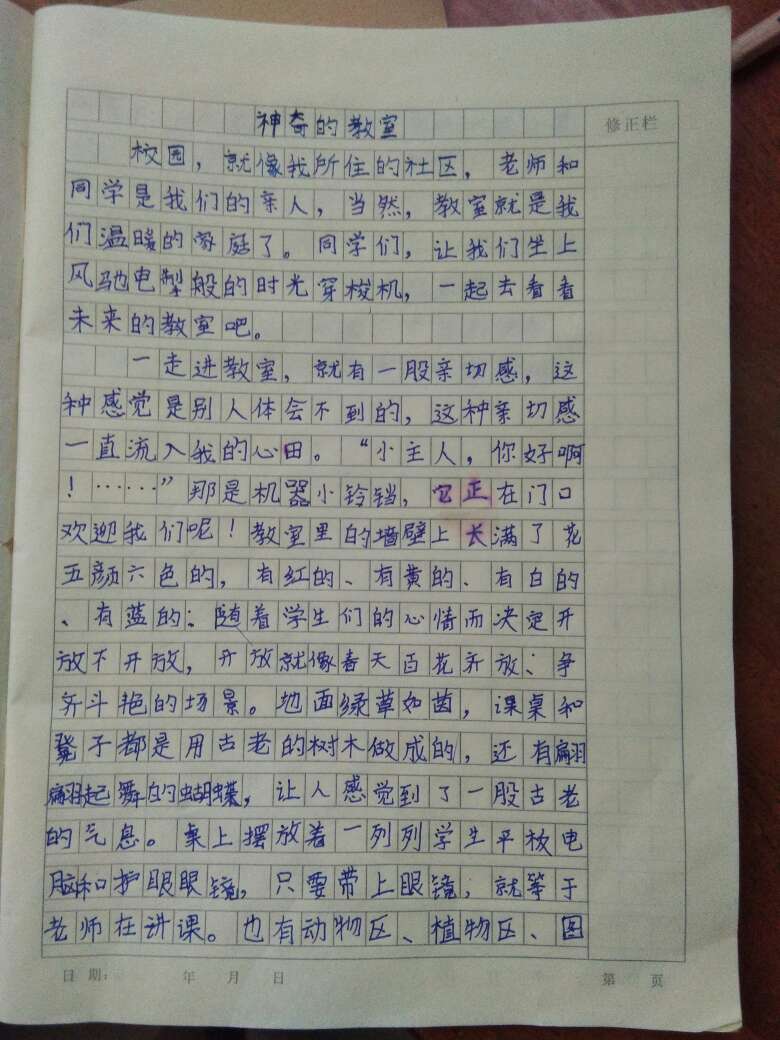 神奇的教室
修正栏
校园，就像我所住的社区，老师和
同学是我们的亲人，当然，教室就是我
们温暖的家庭了。同学们，让我们坐上
风驰电掣般的时光穿梭机，一起去看看
未来的教室吧。
一走进教室，就有一股亲切感，这
种感觉是别人体会不到的，这种亲切感
一直流入我的心田。“小主人，你好啊
！……”那是机器小铃铛，它正在门口
欢迎我们呢！教室里的墙壁上长满了花
五颜六色的，有红的、有黄的、有白的
、有蓝的；随着学生们的心情而决定开
放不开放，开放就像春天百花齐放、争
奇斗艳的场景。地面绿草如茵，课桌和
凳子都是用古老的树木做成的，还有翩
翩起舞的蝴蝶，让人感觉到了一股古老
的气息。桌上摆放着一列列学生平板电
脑和护眼眼镜，只要带上眼镜，就等于
老师在讲课。也有动物区、植物区、图
日期： 年 月 日
第 页